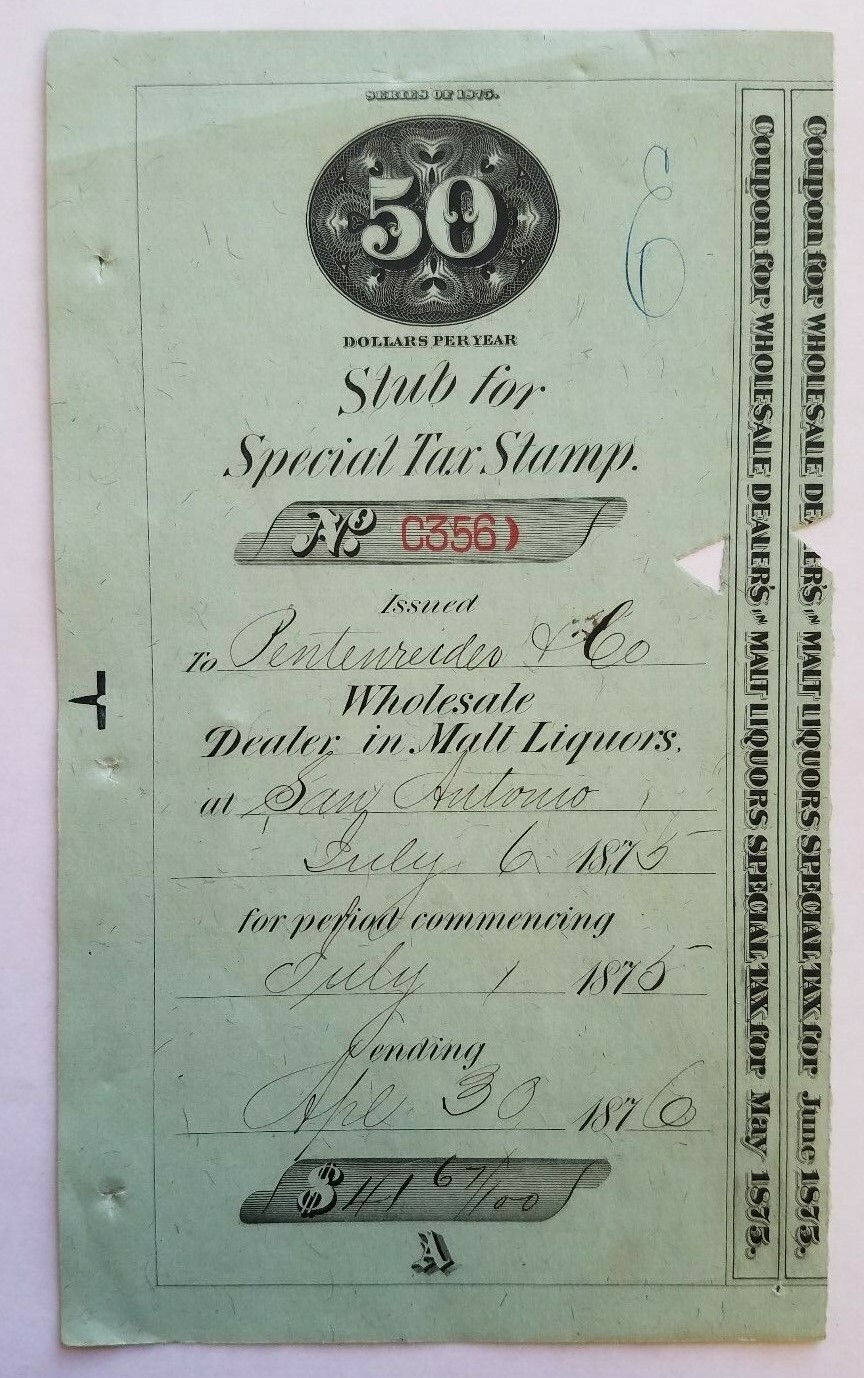 SERIES OF 1875.
50
DOLLARS PER YEAR
Stub for
Special Tax Stamp.
No. C356)
Issued
To Pentenreider & Co
Wholesale
Dealer in Malt Liquors,
at San Antonio
July 6 1875
for period commencing
July 1 1875
ending
Apl 30 1876
$41 67/100
A
Coupon for WHOLESALE DEALER'S IN MALT LIQUORS SPECIAL TAX for May 1875.
Coupon for WHOLESALE DEALER'S IN MALT LIQUORS SPECIAL TAX for June 1875.